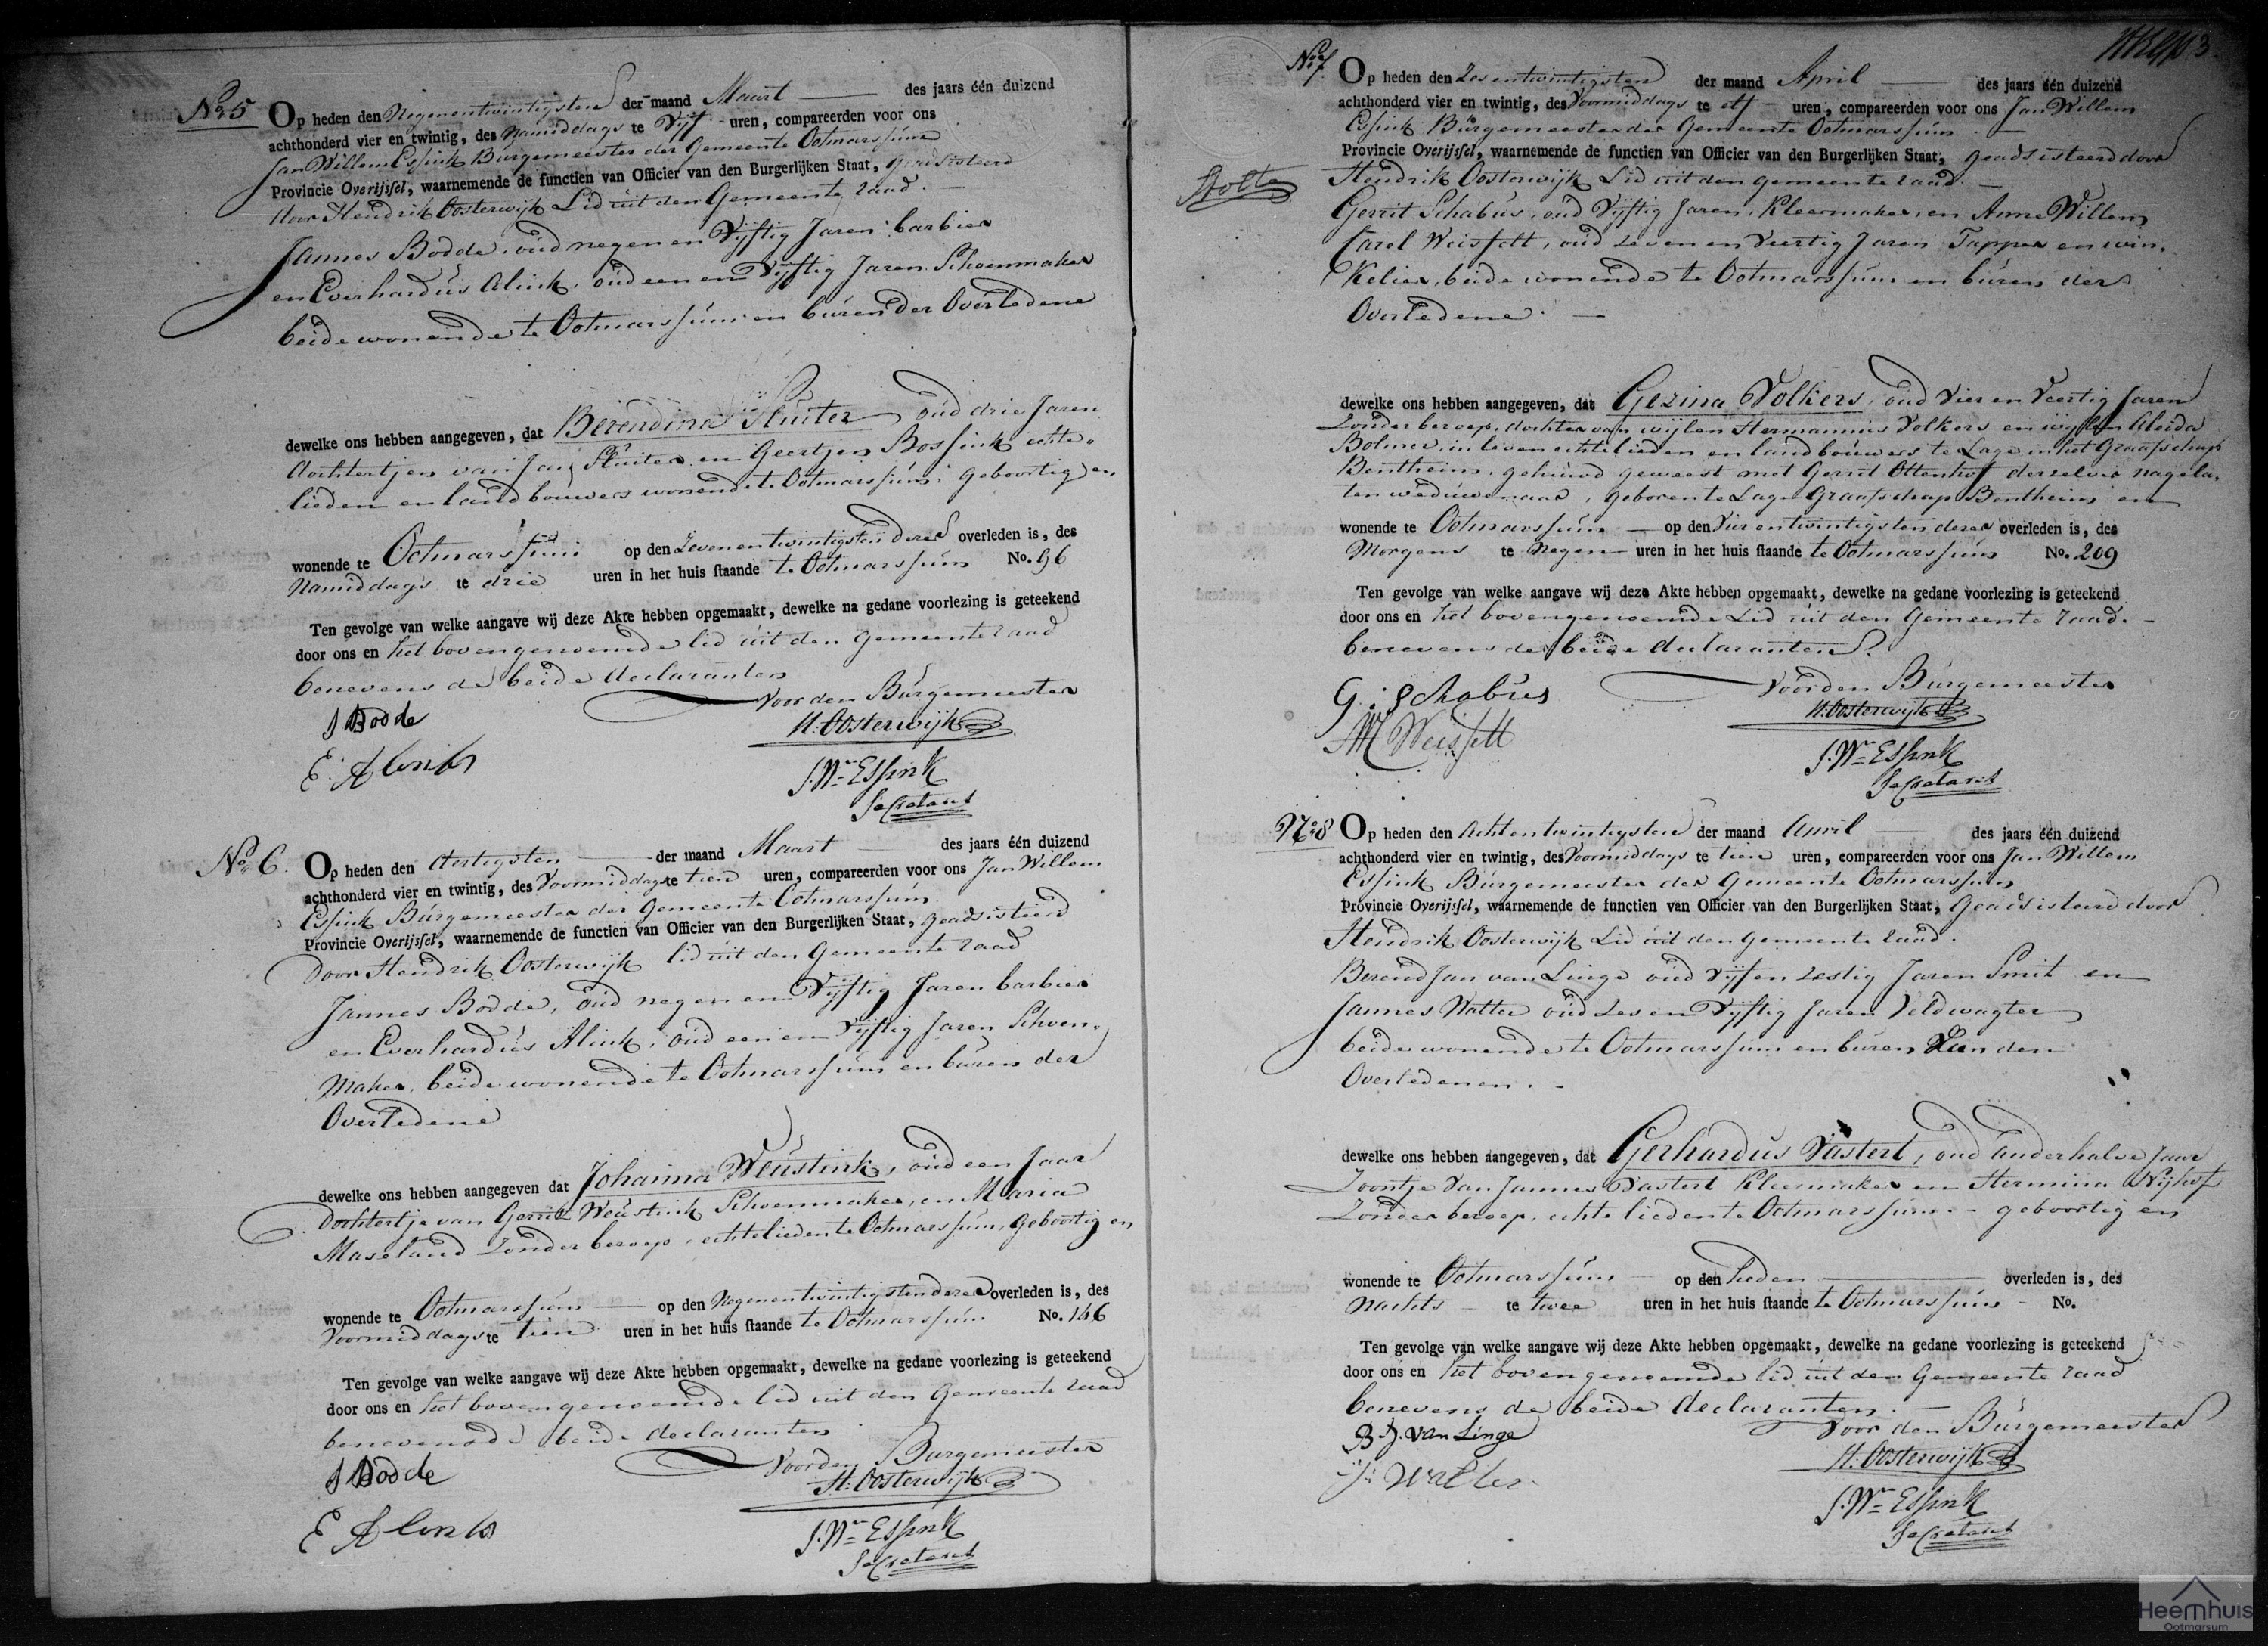 No 5 Op heden den Negenentwintigsten der maand Maart des jaars één duizend
achthonderd vier en twintig, des Namiddags te Vijf uren, compareerden voor ons
Jan Willem Essink Burgemeester der Gemeente Ootmarssum
Provincie Overijssel, waarnemende de functien van Officier van den Burgerlijken Staat, geadsisteerd
door Hendrik Oosterwijk Lid uit den Gemeente raad.
Jannes Bodde, oud negen en Vijftig Jaren barbier
en Everhardus Alink, oud een en Vijftig Jaren Schoenmaker
beide wonende te Ootmarssum en buren der Overledene
dewelke ons hebben aangegeven, dat Berendina Sluiter oud drie Jaren
dochtertjen van Jan Sluiter en Geertjen Bossink echte-
lieden en landbouwers wonende te Ootmarssum, geboortig en
wonende te Ootmarssum op den Zevenentwintigsten dezer overleden is, des
Namiddags te drie uren in het huis staande te Ootmarssum No. 96
Ten gevolge van welke aangave wij deze Akte hebben opgemaakt, dewelke na gedane voorlezing is geteekend
door ons en het bovengenoemde lid uit den gemeente raad
benevens de beide declaranten
Voor den Burgemeester
J Bodde
H: Oosterwijk
E. Alink
J. Wm Essink
Secretaris
No 6. Op heden den dertigsten der maand Maart des jaars één duizend
achthonderd vier en twintig, des Voormiddags te tien uren, compareerden voor ons Jan Willem
Essink Burgemeester der Gemeente Ootmarssum
Provincie Overijssel, waarnemende de functien van Officier van den Burgerlijken Staat, geadsisteerd
Door Hendrik Oosterwijk lid uit den Gemeente raad
Jannes Bodde, oud negen en Vijftig Jaren barbier
en Everhardus Alink, oud een en Vijftig Jaren Schoen-
Maker, beide wonende te Ootmarssum en buren der
Overledene
dewelke ons hebben aangegeven dat Johanna Weustink, oud een Jaar
Dochtertje van Gerrit Weustink Schoenmaker, en Maria
Maseland Zonder beroep, echtelieden te Ootmarssum, geboortig en
wonende te Ootmarssum op den Negenentwintigsten dezer overleden is, des
Voormiddags te tien uren in het huis staande te Ootmarssum No. 146
Ten gevolge van welke aangave wij deze Akte hebben opgemaakt, dewelke na gedane voorlezing is geteekend
door ons en het bovengenoemde lid uit den Gemeente raad
benevens de beide declaranten
Voor den Burgemeester
J Bodde
H: Oosterwijk
E Alink
J. Wm Essink
Secretaris
3.
No 7. Op heden den Zesentwintigsten der maand April des jaars één duizend
achthonderd vier en twintig, des Voormiddags te elf uren, compareerden voor ons Jan Willem
Essink Burgemeester der Gemeente Ootmarssum
Provincie Overijssel, waarnemende de functien van Officier van den Burgerlijken Staat, geadsisteerd door
Hendrik Oosterwijk Lid uit den gemeente raad.
Gerrit Schabus, oud Vijftig Jaren, Kleermaker, en Anne Willem
Carel Weisfelt, oud Zeven en Veertig Jaren Tapper en win-
Kelier, beide wonende te Ootmarssum en buren der
Overledene.
dewelke ons hebben aangegeven, dat Gezina Volkers, oud Vier en Veertig Jaren
Zonder beroep, dochter van wijlen Hermannus Volkers en wijlen Aleida
Bolmer, in leven echtelieden en landbouwers te Lage in het Graafschap
Bentheim, gehuwd geweest met Gerrit Ottenhof derzelver nagela-
ten weduwenaar, geboren te Lage Graafschap Bentheim en
wonende te Ootmarssum op den Vier entwintigsten dezer overleden is, des
Morgens te negen uren in het huis staande te Ootmarssum No. 209
Ten gevolge van welke aangave wij deze Akte hebben opgemaakt, dewelke na gedane voorlezing is geteekend
door ons en het bovengenoemde Lid uit den Gemeente raad.
benevens de beide declaranten.
Voor den Burgemeester
G: Schabus
H: Oosterwijk
Weisfelt
J. Wm Essink
Secretaris
No 8 Op heden den Achtentwintigsten der maand April des jaars één duizend
achthonderd vier en twintig, des Voormiddags te tien uren, compareerden voor ons Jan Willem
Essink Burgemeester der Gemeente Ootmarssum
Provincie Overijssel, waarnemende de functien van Officier van den Burgerlijken Staat, Geadsisteerd door
Hendrik Oosterwijk Lid uit den Gemeente raad.
Berend Jan van Linge oud Vijf en Zestig Jaren Smit en
Jannes Walter oud Zes en Vijftig Jaren Veldwagter
beide wonende te Ootmarssum en buren Van den
Overledenen.
dewelke ons hebben aangegeven, dat Gerhardus Vastert, oud Anderhalve Jaar
Zoontje Van Jannes Vastert Kleermaker en Hermina Nijhof
Zonder beroep, echtelieden te Ootmarssum geboortig en
wonende te Ootmarssum op den heden overleden is, des
Nachts te twee uren in het huis staande te Ootmarssum No.
Ten gevolge van welke aangave wij deze Akte hebben opgemaakt, dewelke na gedane voorlezing is geteekend
door ons en het bovengenoemde lid uit den Gemeente raad
benevens de beide declaranten.
Voor den Burgemeester
B. J. van Linge
H: Oosterwijk
J: Walter
J. Wm Essink
Secretaris
Heemhuis
Ootmarsum